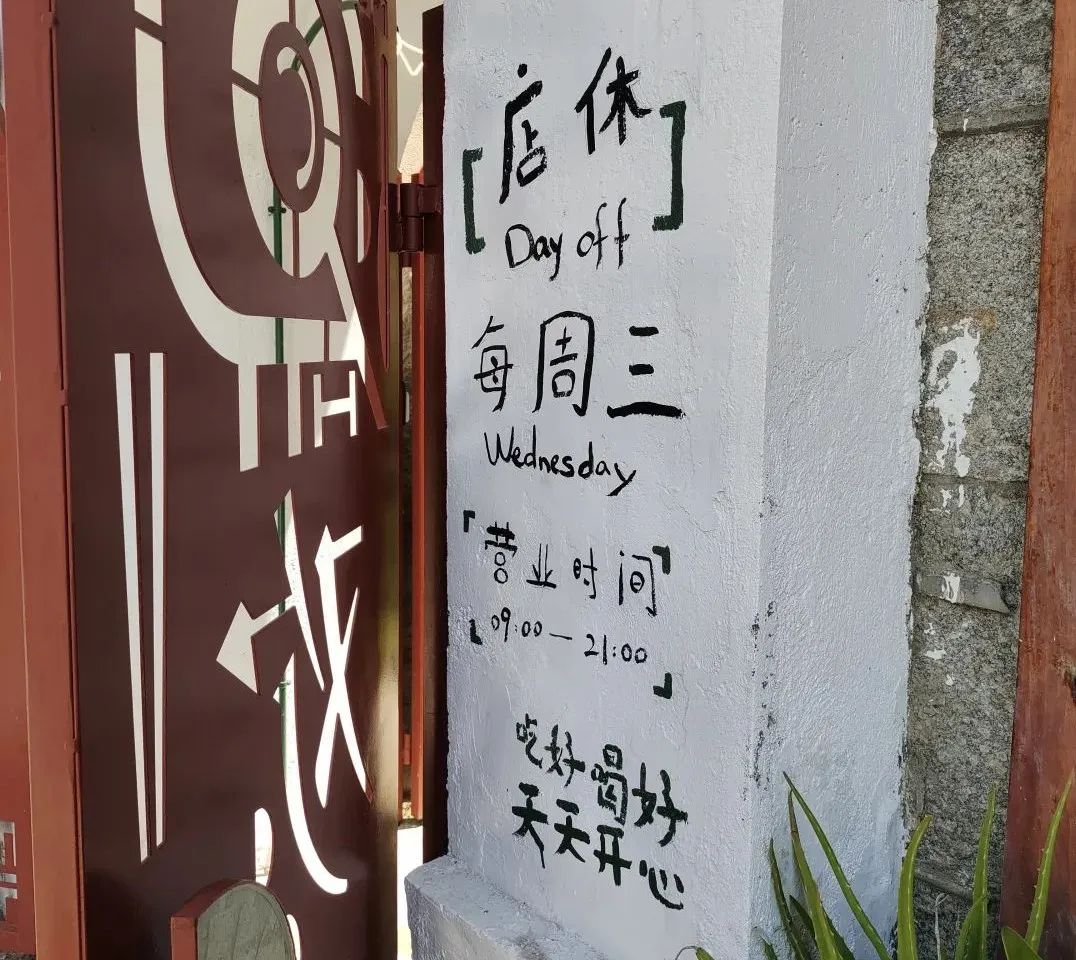 [店休]
Day off
每周三
Wednesday
「营业时间
09:00—21:00」
吃好喝好
天天开心